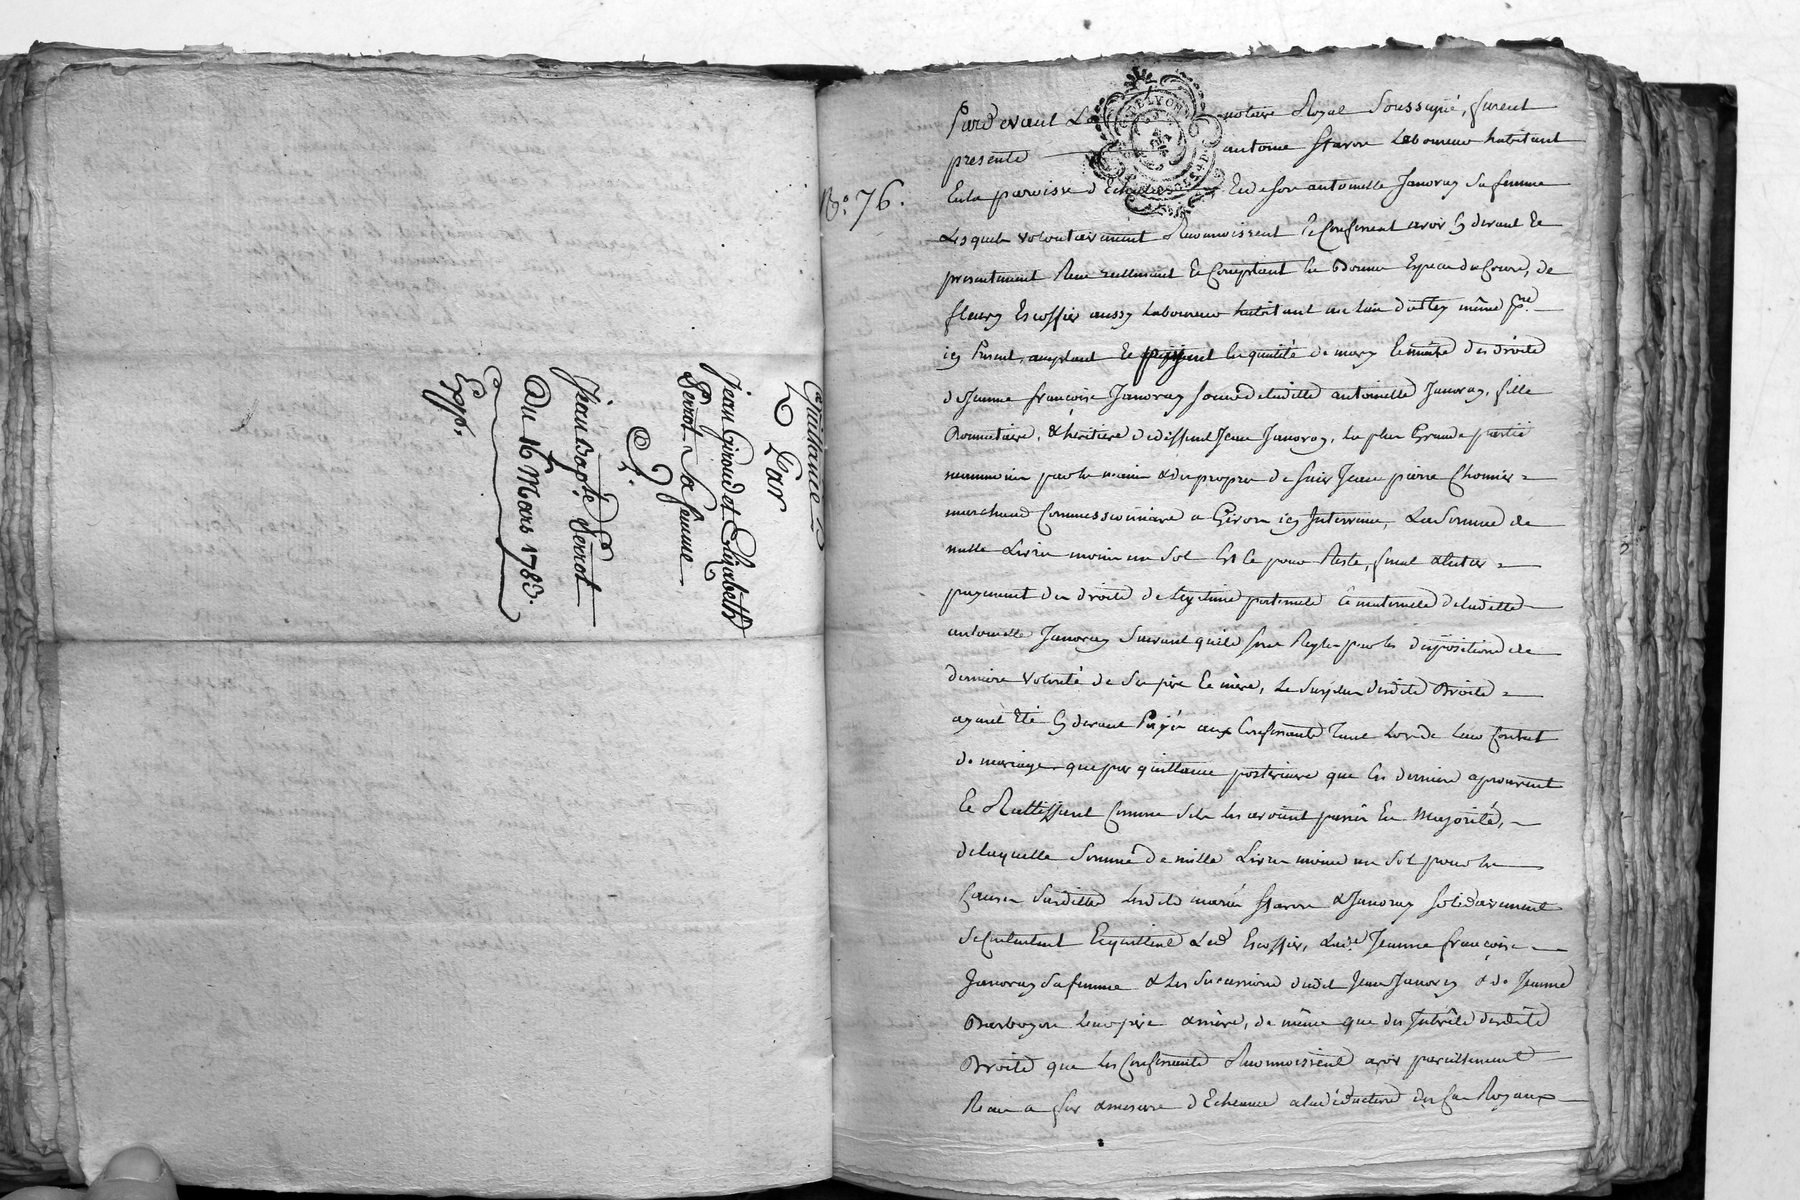 Quittance
Par
Jean Giroud et Elizabeth
Perrot sa femme
à
Jean Bapte Perrot
Du 16 Mars 1783.
Expp.
No. 76.
Pard evant Le notaire Royal Soussigné, furent
presents antoine Staron Laboureur habitant
En la paroisse d' Et de son antoinette Janoray sa femme
Lesquels volontairement Reconnoissent & Confessent avoir Cy devant Et
presentement Receu reellement Et Comptant En Bonne Espece du Cours, de
fleury Escoffier aussy Laboureur habitant au lieu même pse
icy Present, acceptant Et payant En qualité de mary Et maitre des droits
de Jeanne françoise Janoray soeur de laditte antoinette Janoray, fille
Donnataire, & héritiere de deffunt Jean Janoray, La plus Grande partie
neanmoins par les mains & des propres de Sieur Jean pierre Chomier
marchand Commissionnaire a Givors icy Intervenu, La Somme de
mille Livres moins un Sol Et Ce pour Reste, final & Entier
payement des droits de Legitime paternels & maternels de laditte
antoinette Janoray Suivant quils sont Regles par les dispositions de
derniere volonté de Ses pere Et mere, Le Surplus desdits Droits
ayant Eté Cy devant Payés aux Confessants Tant Lors de Leur Contrat
de mariage que par quittance posterieure que Ces derniers aprouvent
Et Rattiffient Comme Sils les avoient passés En Majorité,
de laquelle Somme de mille Livres moins un Sol pour les
Causes Susdittes Lesdits mariés Staron & Janoray Solidairement
Se Contentent Et quittent Led Escoffier, Lade Jeanne françoise
Janoray Sa femme & Les Successions dudit Jean Janoray & de Jeanne
Leurs pere & mere, de même que des Intérêts desdits
Droits que les Confessants Reconnoissent avoir pareillement
Receu a fur & mesure d'Echeance a la déduction des Royaux